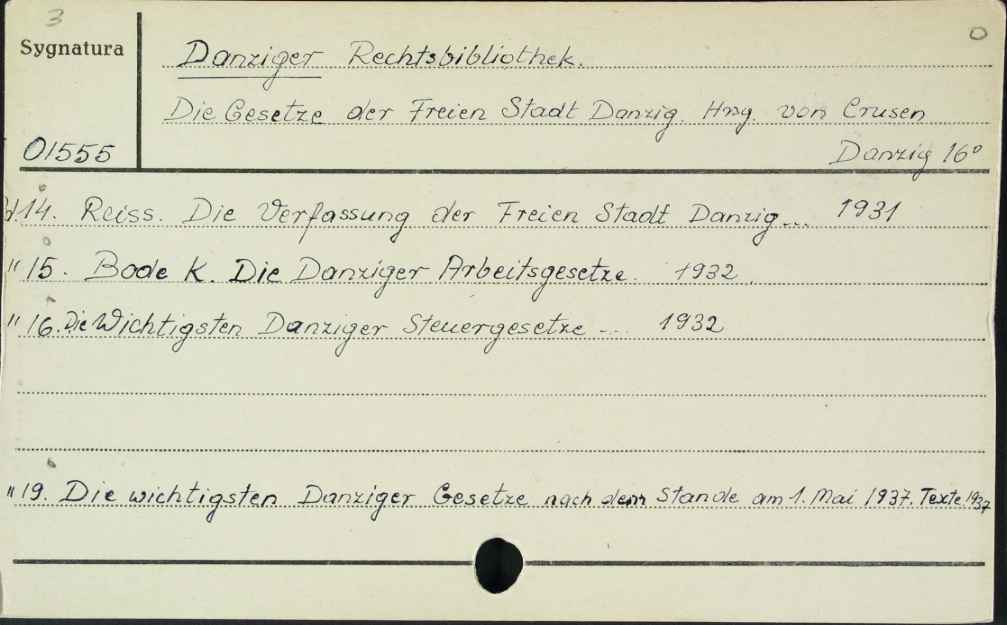 3
O
Sygnatura
Danziger Rechtsbibliothek.
Die Gesetze der Freien Stadt Danzig. Hrsg. von Crusen
01555
Danzig 16°
Bd.14. Reiss. Die Verfassung der Freien Stadt Danzig... 1931
" 15. Bode K. Die Danziger Arbeitsgesetze. 1932.
" 16. Die Wichtigsten Danziger Steuergesetze ... 1932
" 19. Die wichtigsten Danziger Gesetze nach dem Stande am 1. Mai 1937. Texte. 1937